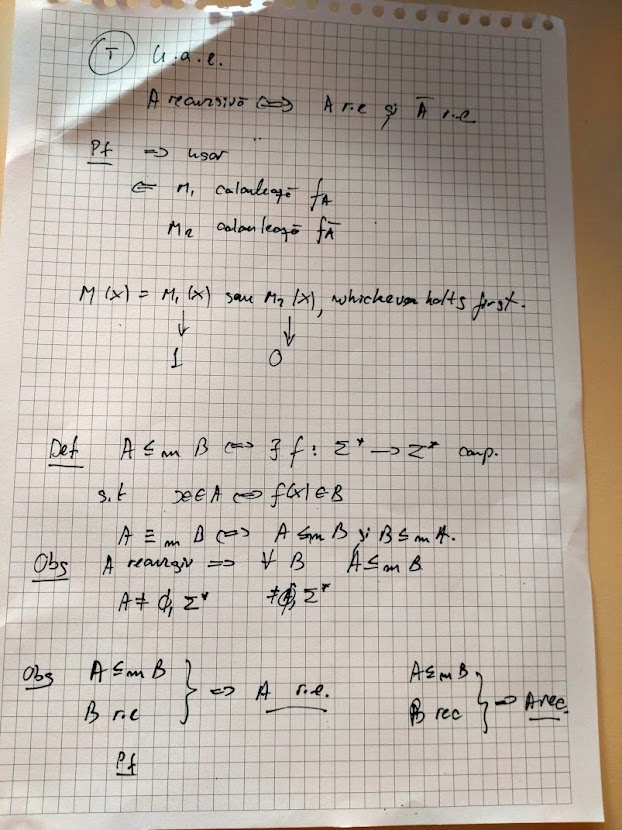 (T) U.a.e.
A recursivă ⟺ A r.e și Ā r.e
Pf ⟹ ușor
⟸ M₁ calculează f_A
M₂ calculează f_Ā
M(x) = M₁(x) sau M₂(x), whichever halts first.
↓ ↓
1 0
Def A ≤m B ⟺ ∃ f: Σ* → Σ* comp.
s.t x∈A ⟺ f(x)∈B
A ≡m B ⟺ A ≤m B și B ≤m A.
Obs A recursiv ⟹ ∀ B A ≤m B
A ≠ ∅, Σ* ≠ ∅, Σ*
Obs A ≤m B } ⟹ A r.e. A ≤m B } ⟹ A rec.
B r.e B rec
Pf